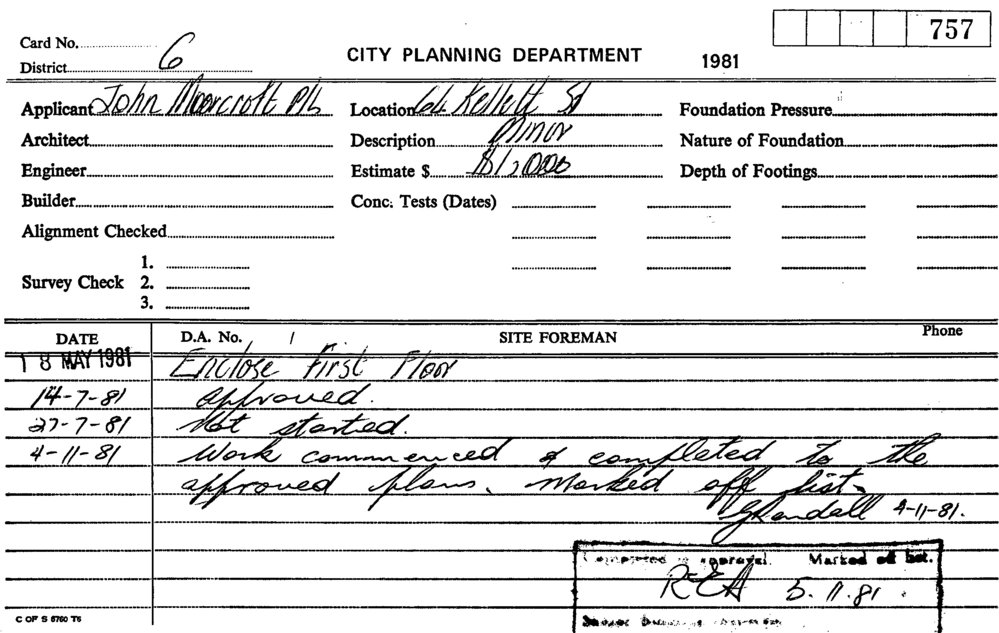 757
Card No. CITY PLANNING DEPARTMENT 1981
District 6
Applicant John Moorcroft P/L Location 64 Kellett St Foundation Pressure
Architect Description Minor Nature of Foundation
Engineer Estimate $ $1,000 Depth of Footings
Builder Conc. Tests (Dates)
Alignment Checked
1.
Survey Check 2.
3.
DATE D.A. No. SITE FOREMAN Phone
18 MAY 1981 Enclose First Floor
14-7-81 approved.
27-7-81 Not started.
4-11-81 Work commenced & completed to the
approved plans. Marked off list.
4-11-81.
Completed to approval. Marked off list.
REA 5.11.81.
C OF S 6760 T6